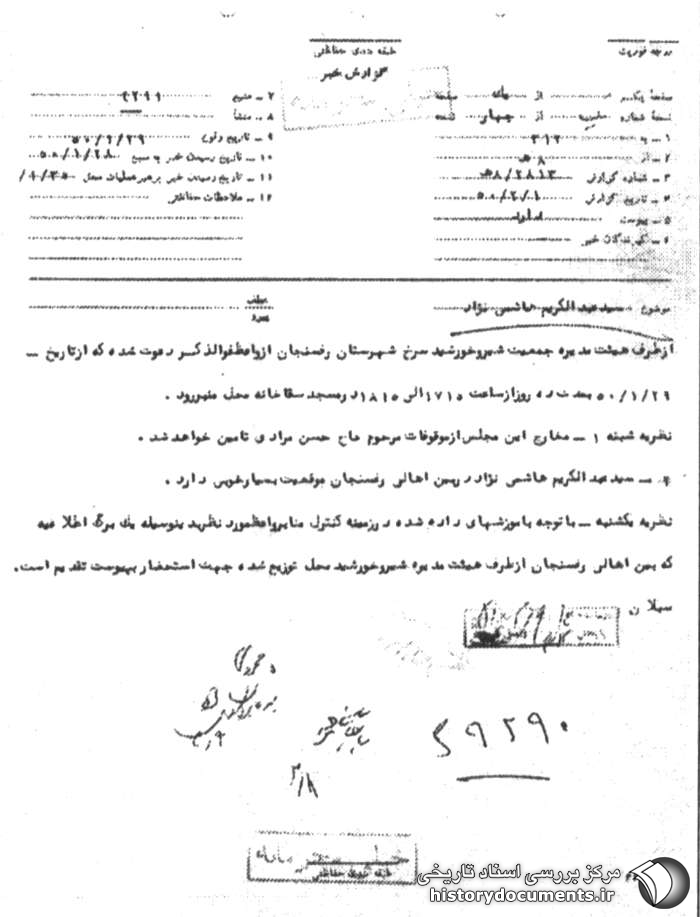 درجه فوریت
طبقه بندی حفاظتی
گزارش خبر
صفحه یکم از یک صفحه
نسخه شماره از چهار نسخه
۱ ـ به ۳۱۲
۲ ـ از ۸ هـ
۳ ـ شماره گزارش ۵۸/۲۸۱۳هـ
۴ ـ تاریخ گزارش ۵۰/۲/۱
۵ ـ پیوست دارد
۶ ـ گیرندگان خبر
۷ ـ منبع ۴۲۹۹
۸ ـ منشأ
۹ ـ تاریخ وقوع ۵۰/۱/۲۹
۱۰ ـ تاریخ رسیدن خبر به منبع ۵۰/۱/۲۸
۱۱ ـ تاریخ رسیدن خبر به رهبر عملیات محل
۱۲ ـ ملاحظات حفاظتی
موضوع سید عبدالکریم هاشمی نژاد
عطف
پیرو
از طرف هیئت مدیره جمعیت شیر و خورشید سرخ شهرستان رفسنجان از واعظ فوق الذکر دعوت شده که از تاریخ ـ
۵۰/۱/۲۹ بمدت ده روز از ساعت ۱۷۱۵ الی ۱۸۱۵ در مسجد سقاخانه محل منبر رود .
نظریه شنبه ۱ ـ مخارج این مجلس از موقوفات مرحوم حاج حسن مرادی تامین خواهد شد .
۲ ـ سید عبدالکریم هاشمی نژاد در بین اهالی رفسنجان موقعیت بسیار خوبی دارد .
نظریه یکشنبه ـ با توجه با موزشهای داده شده در زمینه کنترل منابر واعظ مورد نظر بدینوسیله یک برگ اطلاعیه
که بین اهالی رفسنجان از طرف هیئت مدیره شیر و خورشید محل توزیع شده جهت استحضار بپیوست تقدیم است.
سیلان
۲/۸
۵۹۲۹۰
خیلی محرمانه
طبقه بندی حفاظتی
مرکز بررسی اسناد تاریخی
historydocuments.ir